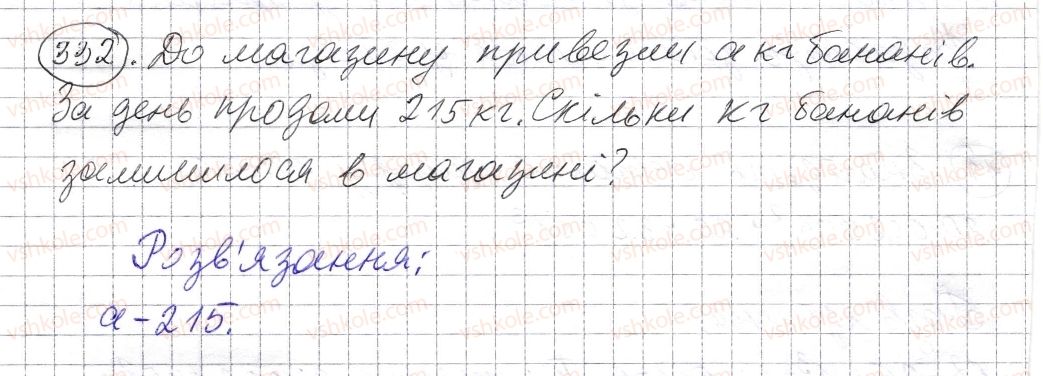 332. До магазину привезли a кг бананів.
За день продали 215 кг. Скільки кг бананів
залишилося в магазині?
Розв'язання:
a - 215.